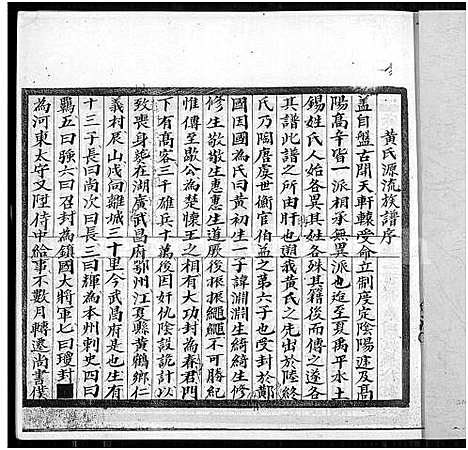 黃氏源流族譜序
蓋自盤古開天軒轅受命立制度定陰陽迹及高
陽高辛皆一派相承無異派也迄至夏禹平水土
錫姓氏人始各異其姓各殊其籍後而傳之遂各
其譜此譜之所由肝也遡我黃氏之先出於陸終
氏乃陶唐虞世衛官伯益之第六子也受封於鄖
國因國為氏曰黃初生一子諱淵淵生綺綺生修
修生敬敬生惠惠生道厥後振振繩繩不可勝紀
惟傳至歇公為楚懷王之相有大功封為春君門
下有高客三千雄兵十萬後因奸仇陰設詭計以
致喪身塟在湖廣武昌府鄂州江夏縣黃鶴鄉仁
義村辰山戌向離城三十里今武昌府是也生有
十三子長曰尚次曰長三曰輝為本州刺史四曰
羈五曰強六曰召封為鎮國大將軍七曰瓊封
為河東太守又陞侍中給事不數月轉遷尚書僕